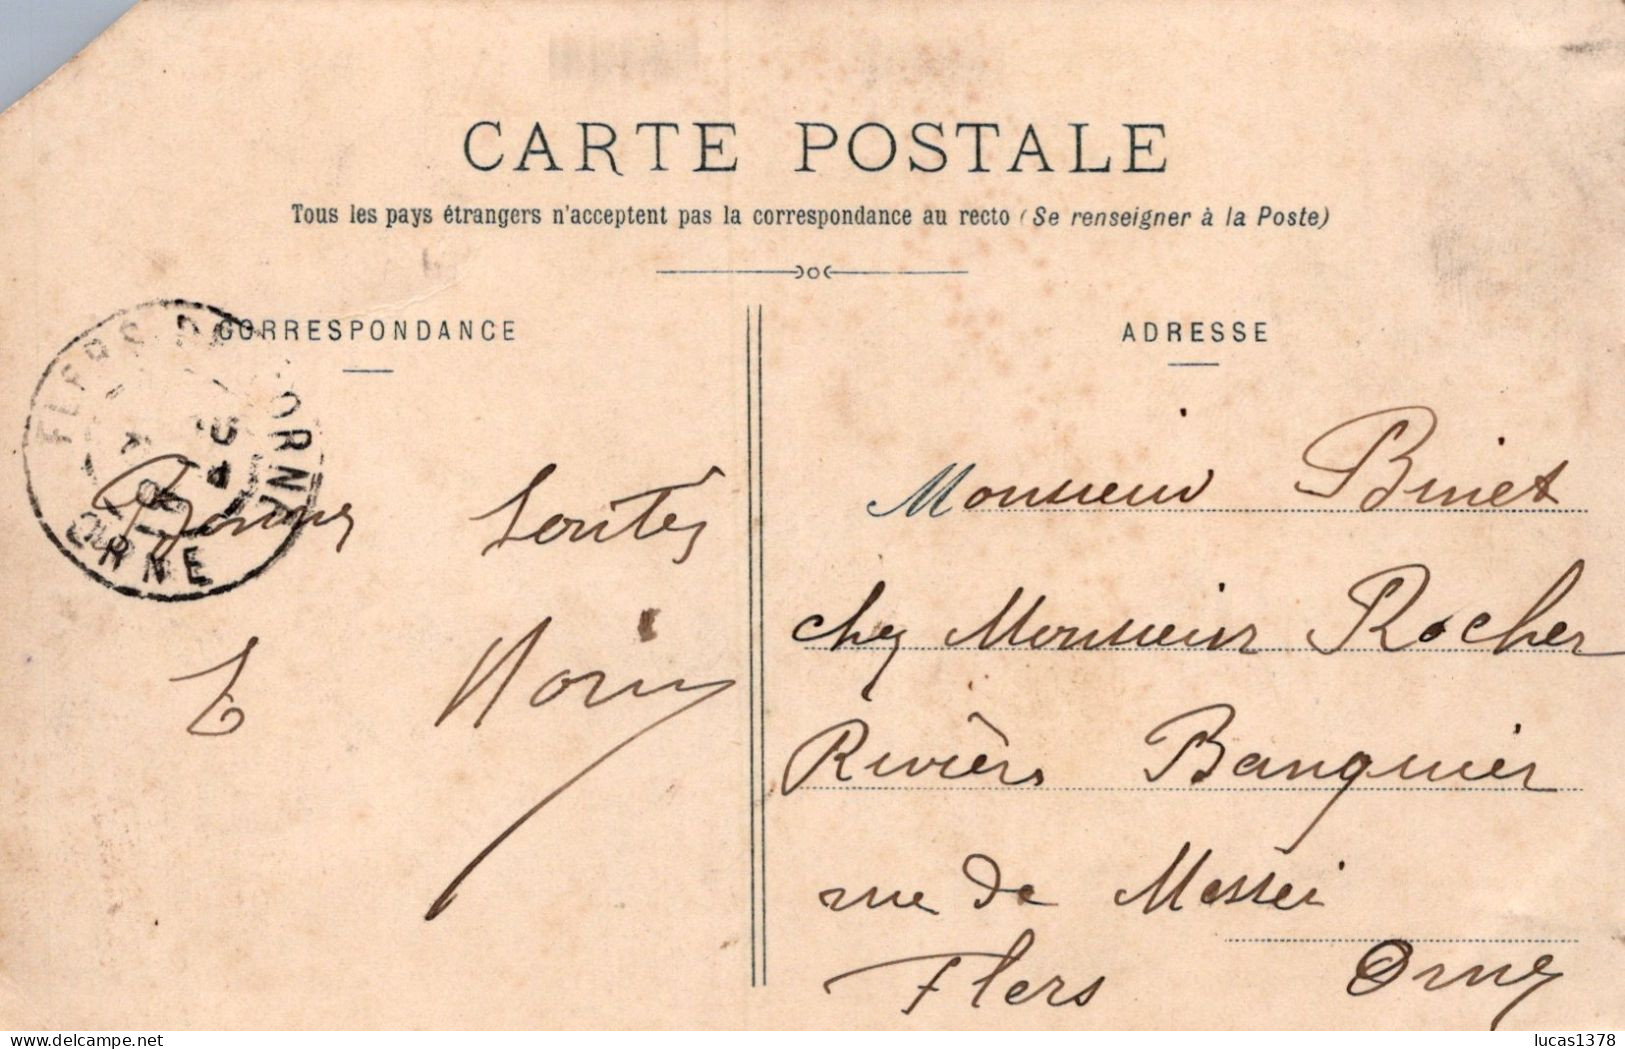 CARTE POSTALE
Tous les pays étrangers n'acceptent pas la correspondance au recto (Se renseigner à la Poste)
CORRESPONDANCE
ADRESSE
FLERS DE L'ORNE
ORNE
Bonnes Santés
E Morin
Monsieur Binet
chez Monsieur Rocher
Rivière Banquier
rue de Messei
Flers Orne
delcampe.net
lucas1378